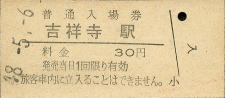 48.-5.-6
普通入場券
吉祥寺駅
料金 30円
発売当日1回限り有効
旅客車内に立入ることはできません。
小
人